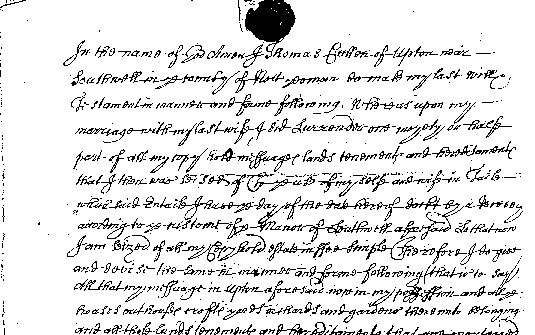 In the name of God Amen I Thomas Cullen of Upton near
Southwell in ye County of Nott yeoman do make my last will &
Testament in manner and forme following. Whereas upon my
marriage with my last wife I did Surrender one moyety or halfe
part of all my copy hold messuages lands tenements and hereditaments
that I then was Seized of to ye use of my selfe and wife in Taile
which said Entaile I have ye day of the date hereof dockt by a Recovery
according to ye custome of ye Manor of Southwell aforesaid So that now
I am Sized of all my Copyhold estate in ffee Simple Therefore I do give
and devise the same in manner and forme following (that is to Say)
All that my messuage in Upton aforesaid now in my possession and all ye
houses outhouses crofts yards orchards and gardens thereunto belonging
and all those lands tenements and hereditaments that are